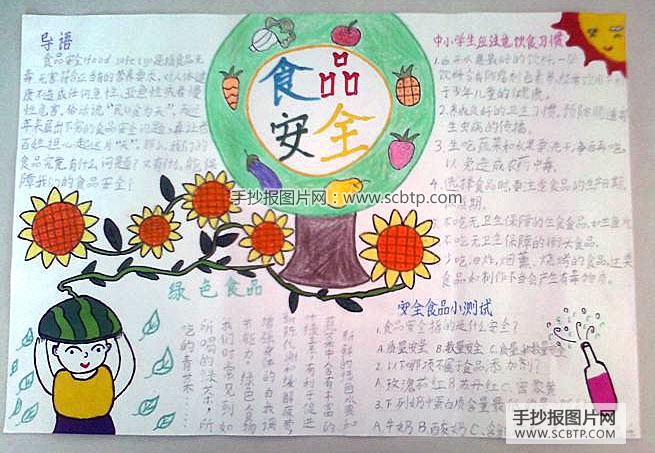 食品
安全
导语
食品安全(food safety)是指食品无
毒、无害,符合应当有的营养要求,对人体健
康不造成任何急性、亚急性或者慢
性危害。俗话说“民以食为天”,而近
年来层出不穷的食品安全问题,真让老
百姓担心起这片“天”。那么,我们的
食品究竟有什么问题
障我们的食品安全!
手抄报图片网:www.scbtp.com
中小学生应注意饮食习惯
1.白开水是最好的饮料,一些
饮料含有防腐剂、色素等,经常饮用不利
于少年儿童的健康。
2.养成良好的卫生习惯,预防肠道寄
生虫病的传播。
3.生吃蔬菜和水果要洗干净后再吃,
以免造成农药中毒。
4.选择食品时要注意食品的生产日期、
期。
5.不吃无卫生保障的生食食品,如生鱼片
不吃无卫生保障的街头食品。
少吃油炸、烟熏、烧烤的食品,这类
食品如制作不当会产生有毒物质。
绿色食品
新鲜的蔬菜水果和
蔬菜中含有丰富的
增强身体的自我调
节能力。绿色食物
我们时常见到如
所喝的绿茶,所
吃的青菜……
安全食品小测试
1.食品安全指的是什么安全?
A.质量安全 B.数量安全 C.质量和数量安全
2.以下哪项不属于食品添加剂?
A.玫瑰茄红 B.苏丹红 C.密蒙黄
3.下列奶中蛋白质含量最
A.牛奶 B.酸奶 C.
手抄报图片网
WWW.SCBTP.COM